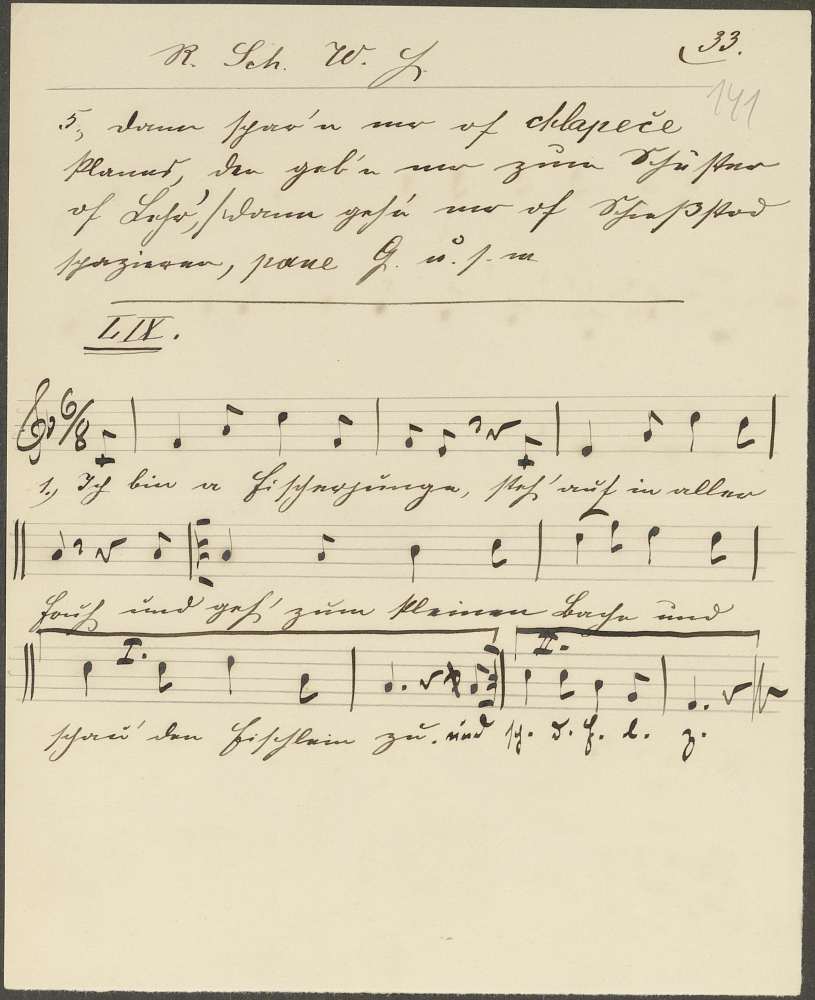 R. Sch. W. H.
33.
141
5., dann spar'n mr of chlapeče
klanns, den geb'n mr zum Schuster
of Lehr', dann gehn mr of Schießstod
spazieren, pane G. u. s. w
LIX.
6/8
1., Ich bin a Fischerjunge, steh' auf in aller
Früh und geh' zum kleinen Bache und
I. II.
schau' den Fischlein zu. und sch. d. F. l. z.